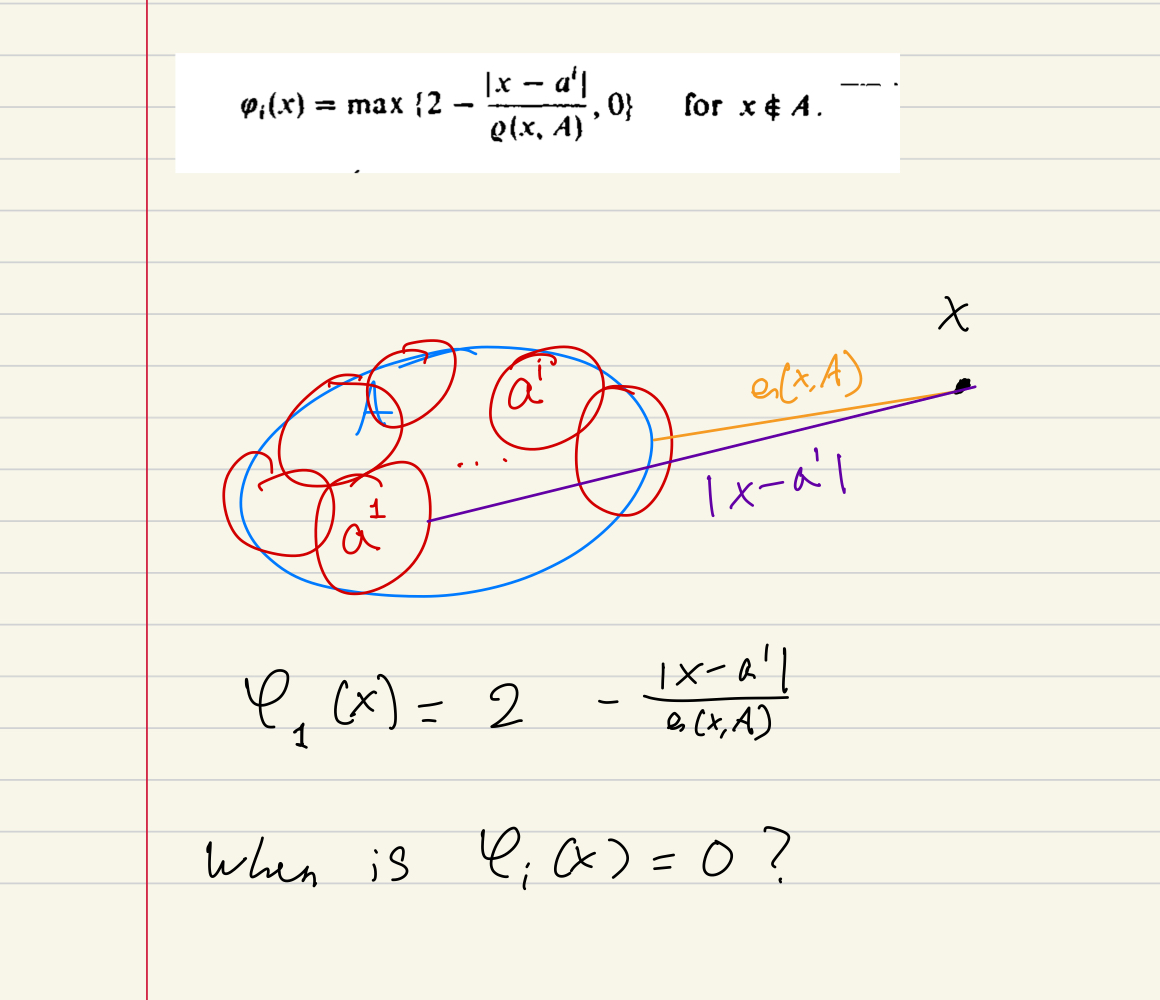 φᵢ(x) = max {2 − |x − aⁱ| / ϱ(x, A), 0} for x ∉ A.
x
ϱ(x,A)
aⁱ
A
...
|x−a¹|
a¹
φ₁(x) = 2 − |x−a¹| / ϱ(x,A)
When is φᵢ(x) = 0?